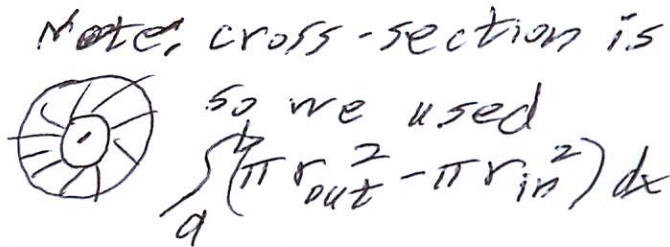 Note: cross-section is
so we used
∫_a^b (π r_out^2 - π r_in^2) dx